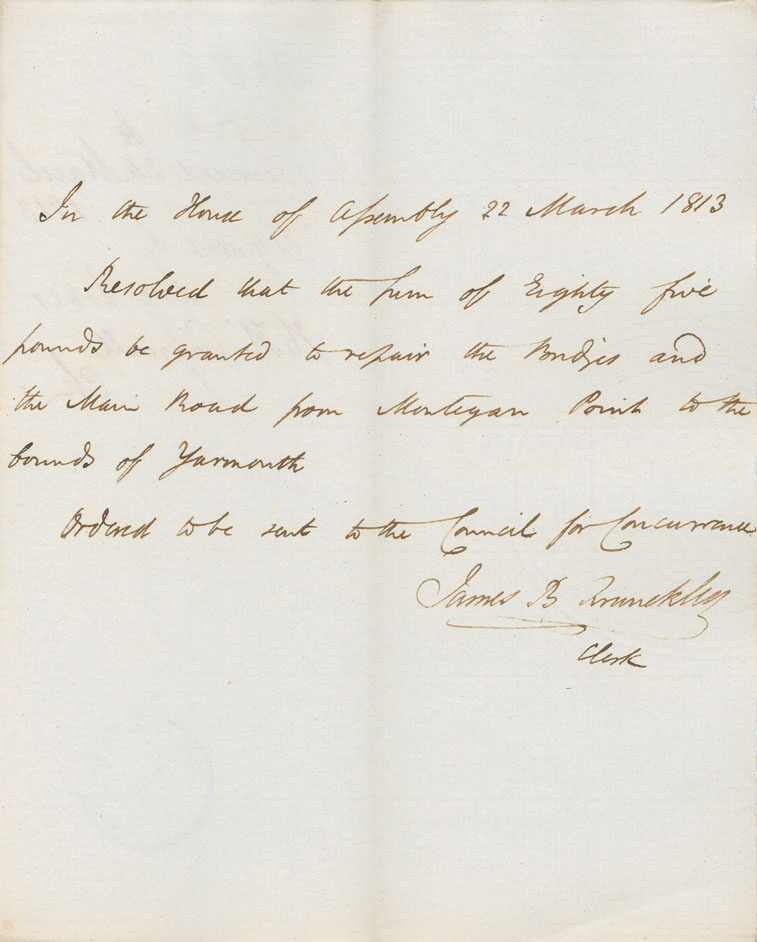 In the House of Assembly 22 March 1813
Resolved that the sum of Eighty five
pounds be granted to repair the Bridges and
the Main Road from Montegan Point to the
bounds of Yarmouth
Ordered to be sent to the Council for Concurrence
James B Francklin
Clerk